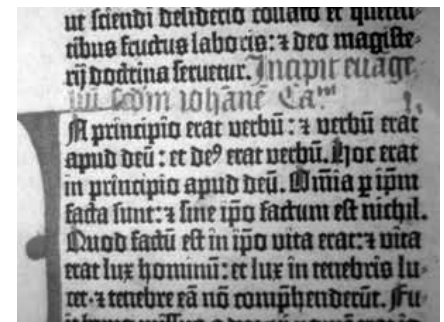 ut sciendi desiderio collato et queren-
tibus fructus laboris: ⁊ deo magiste-
rij doctrina seruetur. Incipit euāge-
liū scdm iohānē Ca.m I.
IN principio erat verbū: ⁊ verbū erat
apud deū: et deꝰ erat verbū. Hoc erat
in principio apud deū. Om̄ia p ip̄m
facta sunt: ⁊ sine ip̄o factum est nichil.
Quod factū est in ip̄o vita erat: ⁊ vita
erat lux hominū: et lux in tenebris lu-
cet· ⁊ tenebre eā nō comp̄henderūt. Fu-